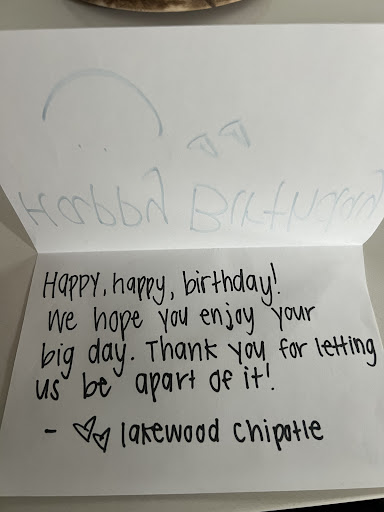 Happy Birthday
Happy, happy, birthday!
We hope you enjoy your
big day. Thank you for letting
us be apart of it!
- ♡♡ lakewood chipotle